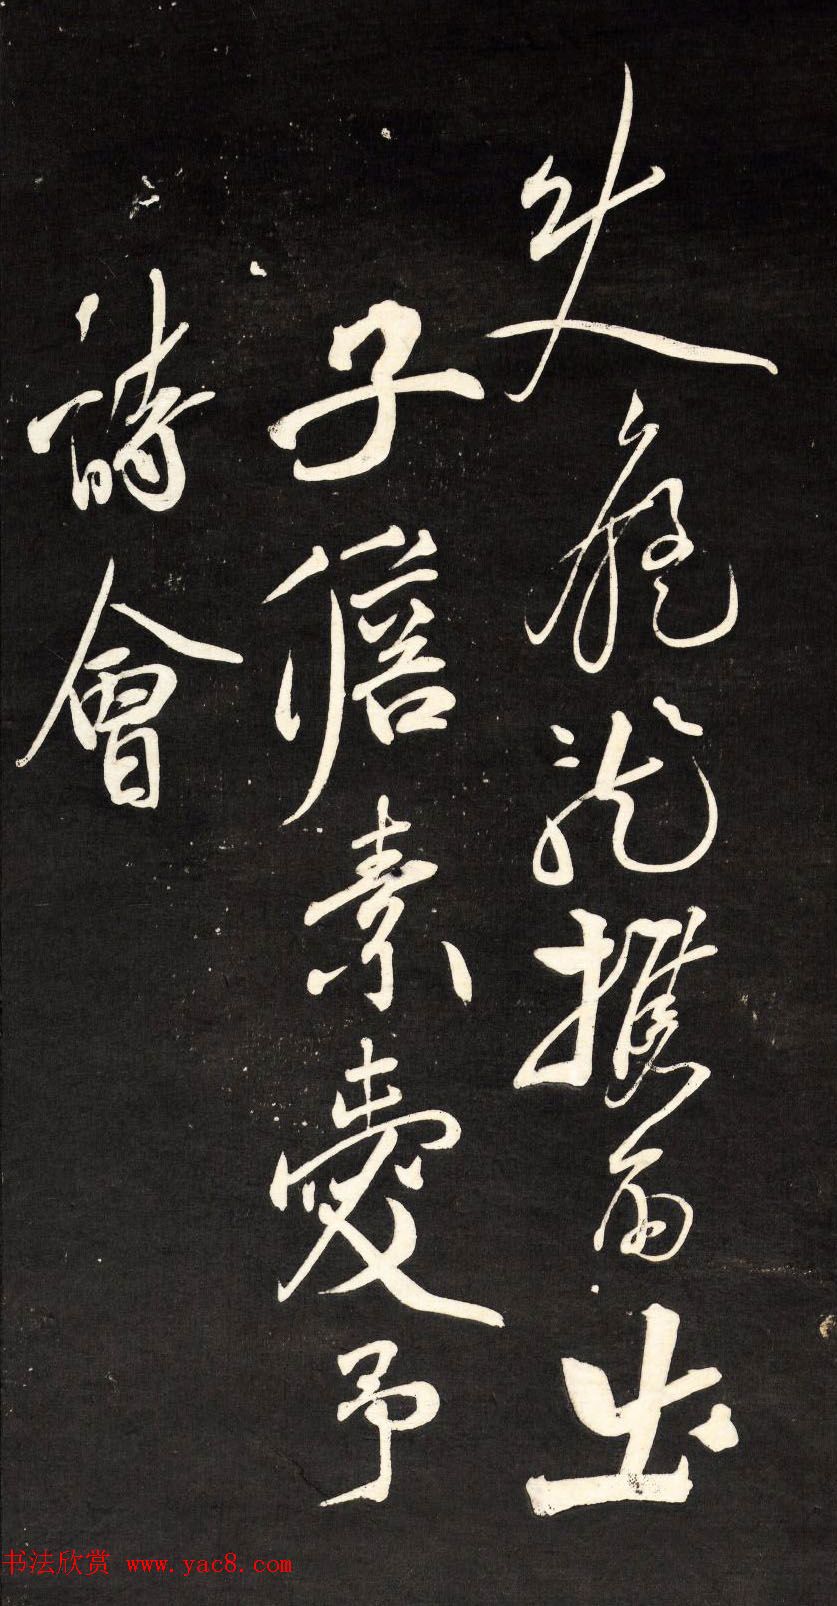 失攜而出
子瞻素愛予
詩會
书法欣赏 www.yac8.com